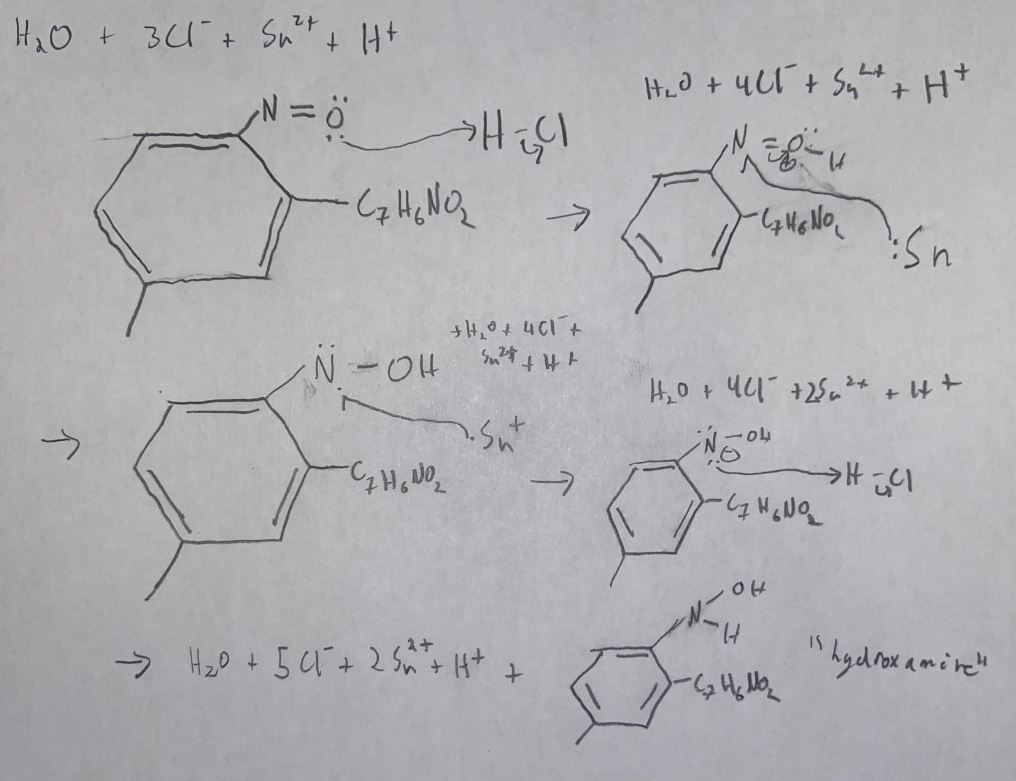 H₂O + 3Cl⁻ + Sn²⁺ + H⁺
N = Ö
H - Cl
C₇H₆NO₂
H₂O + 4Cl⁻ + Sn²⁺ + H⁺
N = O - H
⊕
C₇H₆NO₂
:Sn
+H₂O + 4Cl⁻ +
Sn²⁺ + H+
N̈ - OH
.Sn⁺
C₇H₆NO₂
H₂O + 4Cl⁻ + 2Sn²⁺ + H⁺
N̈ - OH
⊖
H - Cl
C₇H₆NO₂
H₂O + 5Cl⁻ + 2Sn²⁺ + H⁺ +
N
OH
H
C₇H₆NO₂
"hydroxamine"